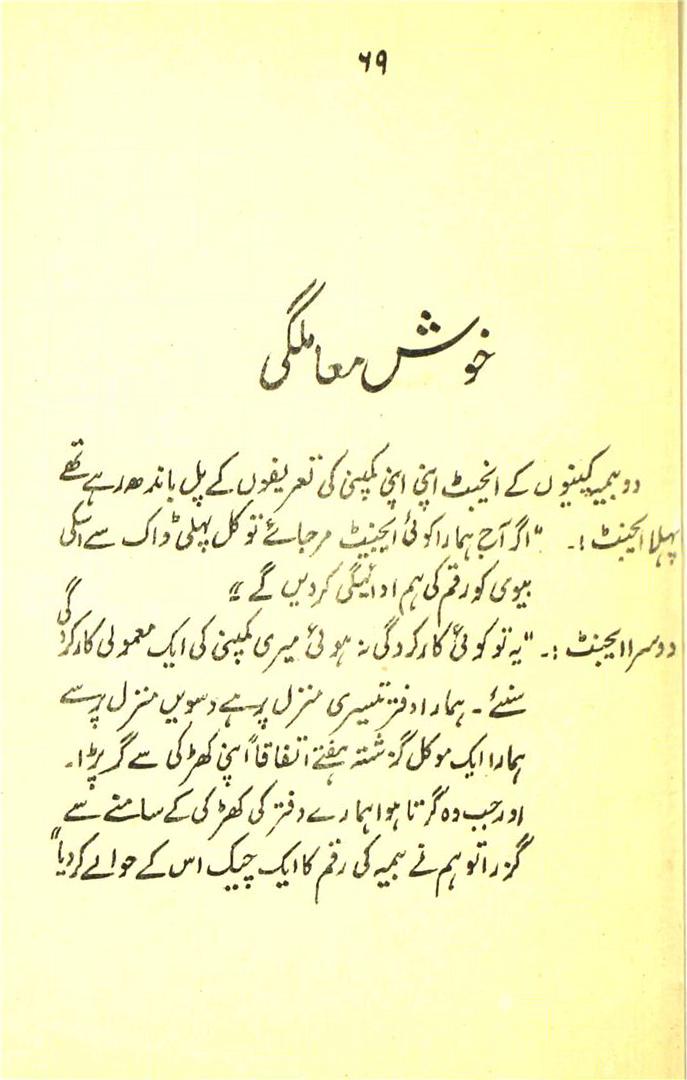 ۶۹
خوش معاملگی
دو بیمہ کمپنیوں کے ایجنٹ اپنی اپنی کمپنی کی تعریفوں کے پل باندھ رہے تھے
پہلا ایجنٹ :۔ "اگر آج ہمارا کوئی ایجنٹ مر جائے تو کل پہلی ڈاک سے اسکی
بیوی کو رقم کی ہم ادائیگی کر دیں گے"
دوسرا ایجنٹ :۔ "یہ تو کوئی کارکردگی نہ ہوئی میری کمپنی کی ایک معمولی کارکردگی
سنئے۔ ہمارا دفتر تیسری منزل پر ہے دسویں منزل پر سے
ہمارا ایک موکل گزشتہ ہفتے اتفاقاً اپنی کھڑکی سے گر پڑا۔
اور جب وہ گرتا ہوا ہمارے دفتر کی کھڑکی کے سامنے سے
گزرا تو ہم نے بیمہ کی رقم کا ایک چیک اس کے حوالے کر دیا"